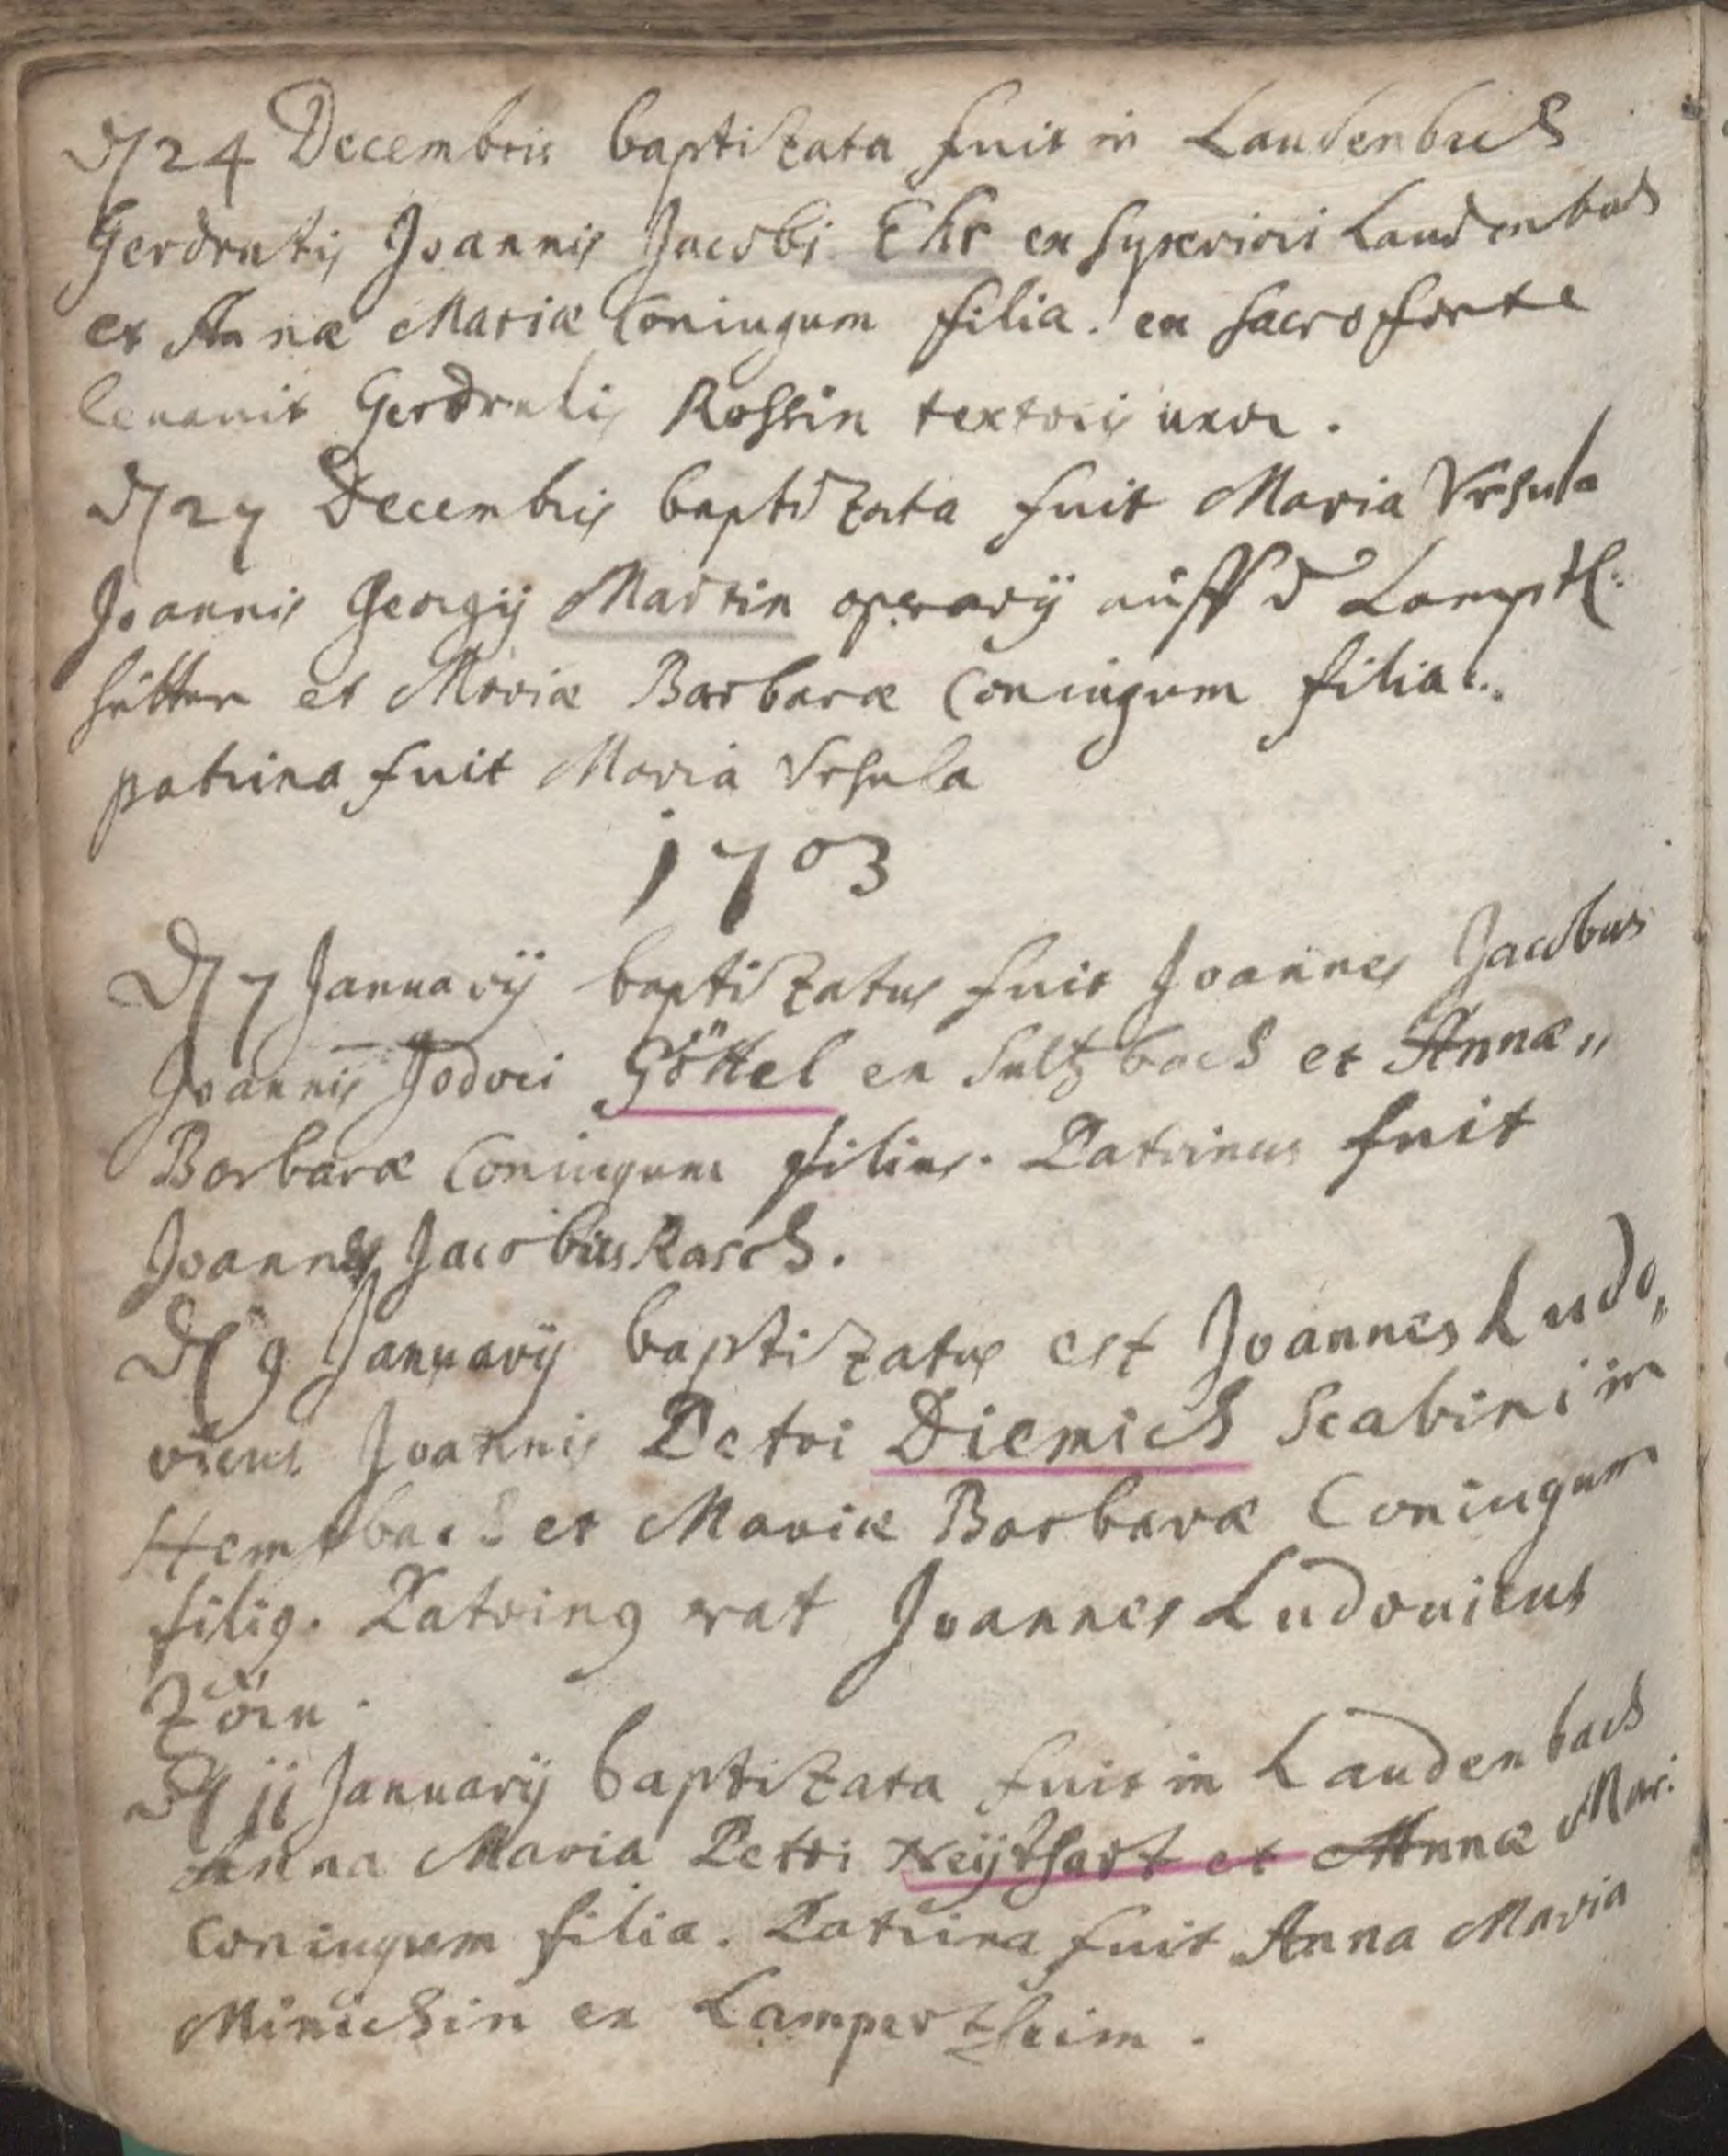 d 24 Decembris baptizata fuit in Laudenbach
Gerdrutis Joannis Jacobi Ehr ex superiori Laudenbach
et Annæ Mariæ Coniugum filia. ex sacro fonte
leuauit Gerdrutis Rossin textoris uxor.
d 27 Decembris baptizata fuit Maria Vrsula
Joannis Georgij Martin operarij auff d
hütten et Mariæ Barbaræ Coniugum filia.
patrina fuit Maria Vrsula
1703
D 7 Januarij baptizatus fuit Joannes Jacobus
Joannis Jodoci Göttel ex Sultzbach et Annæ„
Barbaræ Coniugum filius. Patrinus fuit
Joannes Jacobus Rasch.
D 9 Januarij baptizatus est Joannes Ludo„
vicus Joannis Petri Diemich Scabini in
Hemsbach et Mariæ Barbaræ Coniugum
filig. Patring erat Joannes Ludouicus
Zörn.
d 11 Januarij baptizata fuit in Laudenbach
Anna Maria Petri Neÿthart et Annæ Mar:
Coniugum filia. Patrina fuit Anna Maria
Minichin ex Lampertheim.